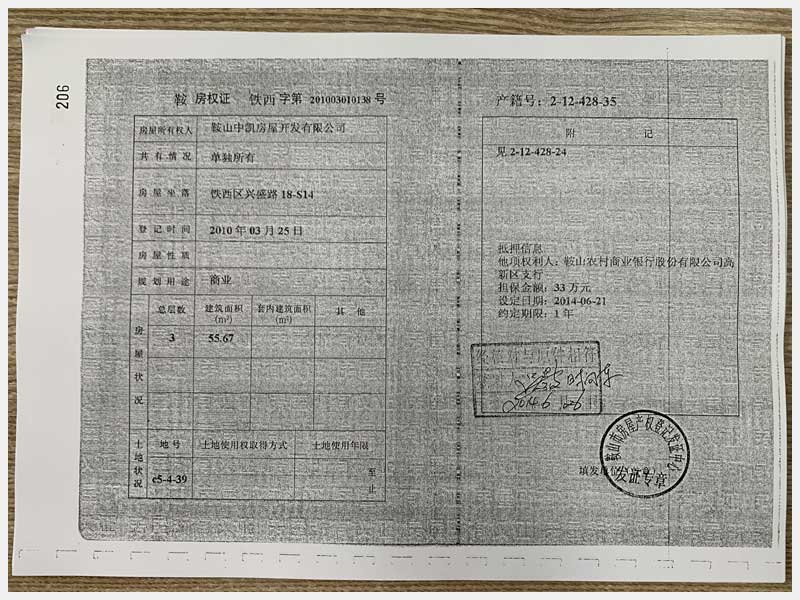 206
鞍 房权证 铁西 字第 201003010138 号
房屋所有权人 鞍山中凯房屋开发有限公司
共有情况 单独所有
房屋坐落 铁西区兴盛路 18-S14
登记时间 2010 年 03 月 25 日
房屋性质
规划用途 商业
房屋状况
总层数 建筑面积(m²) 套内建筑面积(m²) 其他
3 55.67
土地状况
地号 土地使用权取得方式 土地使用年限
c5-4-39 至 止
产籍号：2-12-428-35
附 记
见 2-12-428-24
抵押信息
他项权利人：鞍山农村商业银行股份有限公司高
新区支行
担保金额：33 万元
设定日期：2014-06-21
约定期限：1 年
与原件相符
2014.6.26日
鞍山市房屋产权登记发证中心
发证专章
填发单位